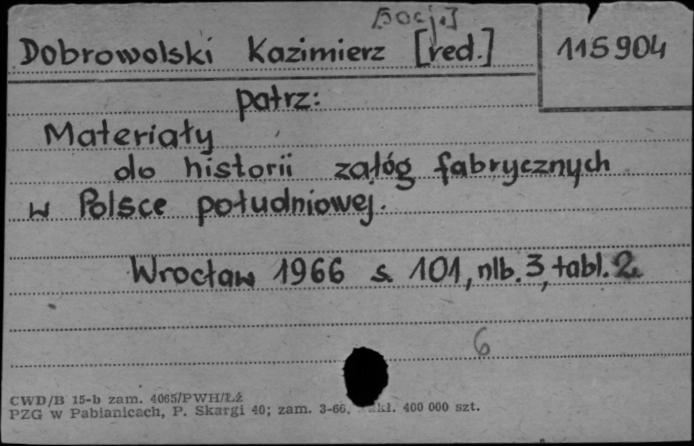 [socj.]
Dobrowolski Kazimierz [red.] 115904
patrz:
Materiały
do historii załóg fabrycznych
w Polsce południowej.
Wrocław 1966 s. 101, nlb. 3, tabl. 2.
6
CWD/B 15-b zam. 4065/PWH/Łż
PZG w Pabianicach, P. Skargi 40; zam. 3-66. akł. 400 000 szt.